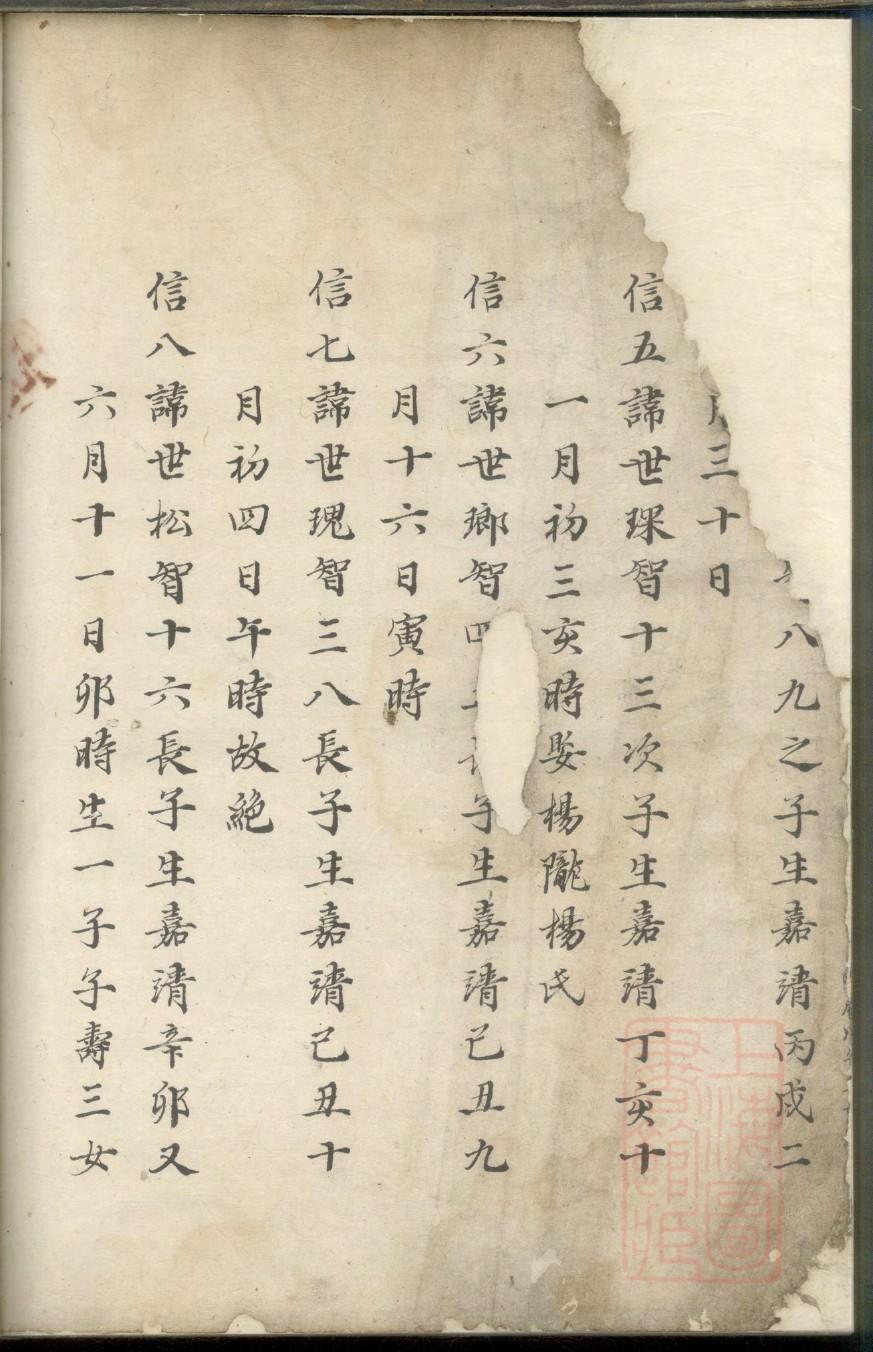 八九之子生嘉靖丙戌二
月三十日
信五諱世琛智十三次子生嘉靖丁亥十
一月初三亥時娶楊隴楊氏
信六諱世瑯智四子生嘉靖己丑九
月十六日寅時
信七諱世瑰智三八長子生嘉靖己丑十
月初四日午時故絶
信八諱世松智十六長子生嘉靖辛卯又
六月十一日卯時生一子子壽三女
上海圖
書館藏